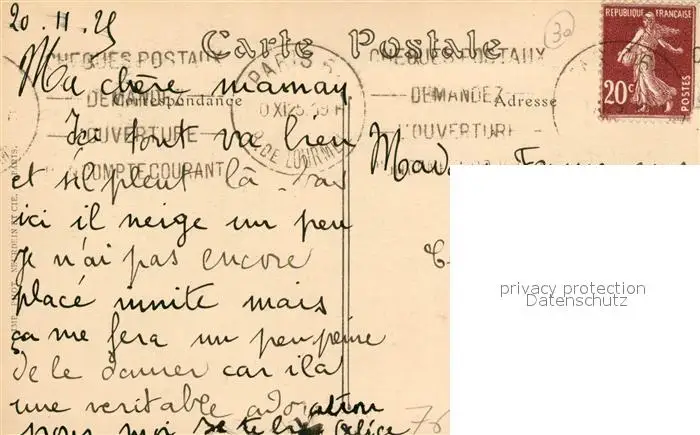 20.11.25
Carte Postale
RÉPUBLIQUE FRANÇAISE
20c
POSTES
CHEQUES POSTAUX
DEMANDEZ
L'OUVERTURE
COMPTE COURANT
PARIS
CHEQUES POSTAUX
DEMANDEZ
L'OUVERTURE
Correspondance
Adresse
Ma chère maman
Ici tout va bien
et s'il pleut là bas
ici il neige un peu
je n'ai pas encore
placé mais
ça me fera un peu peine
de le donner car il a
une veritable adoration
pour moi
Mad
privacy protection
Datenschutz
76